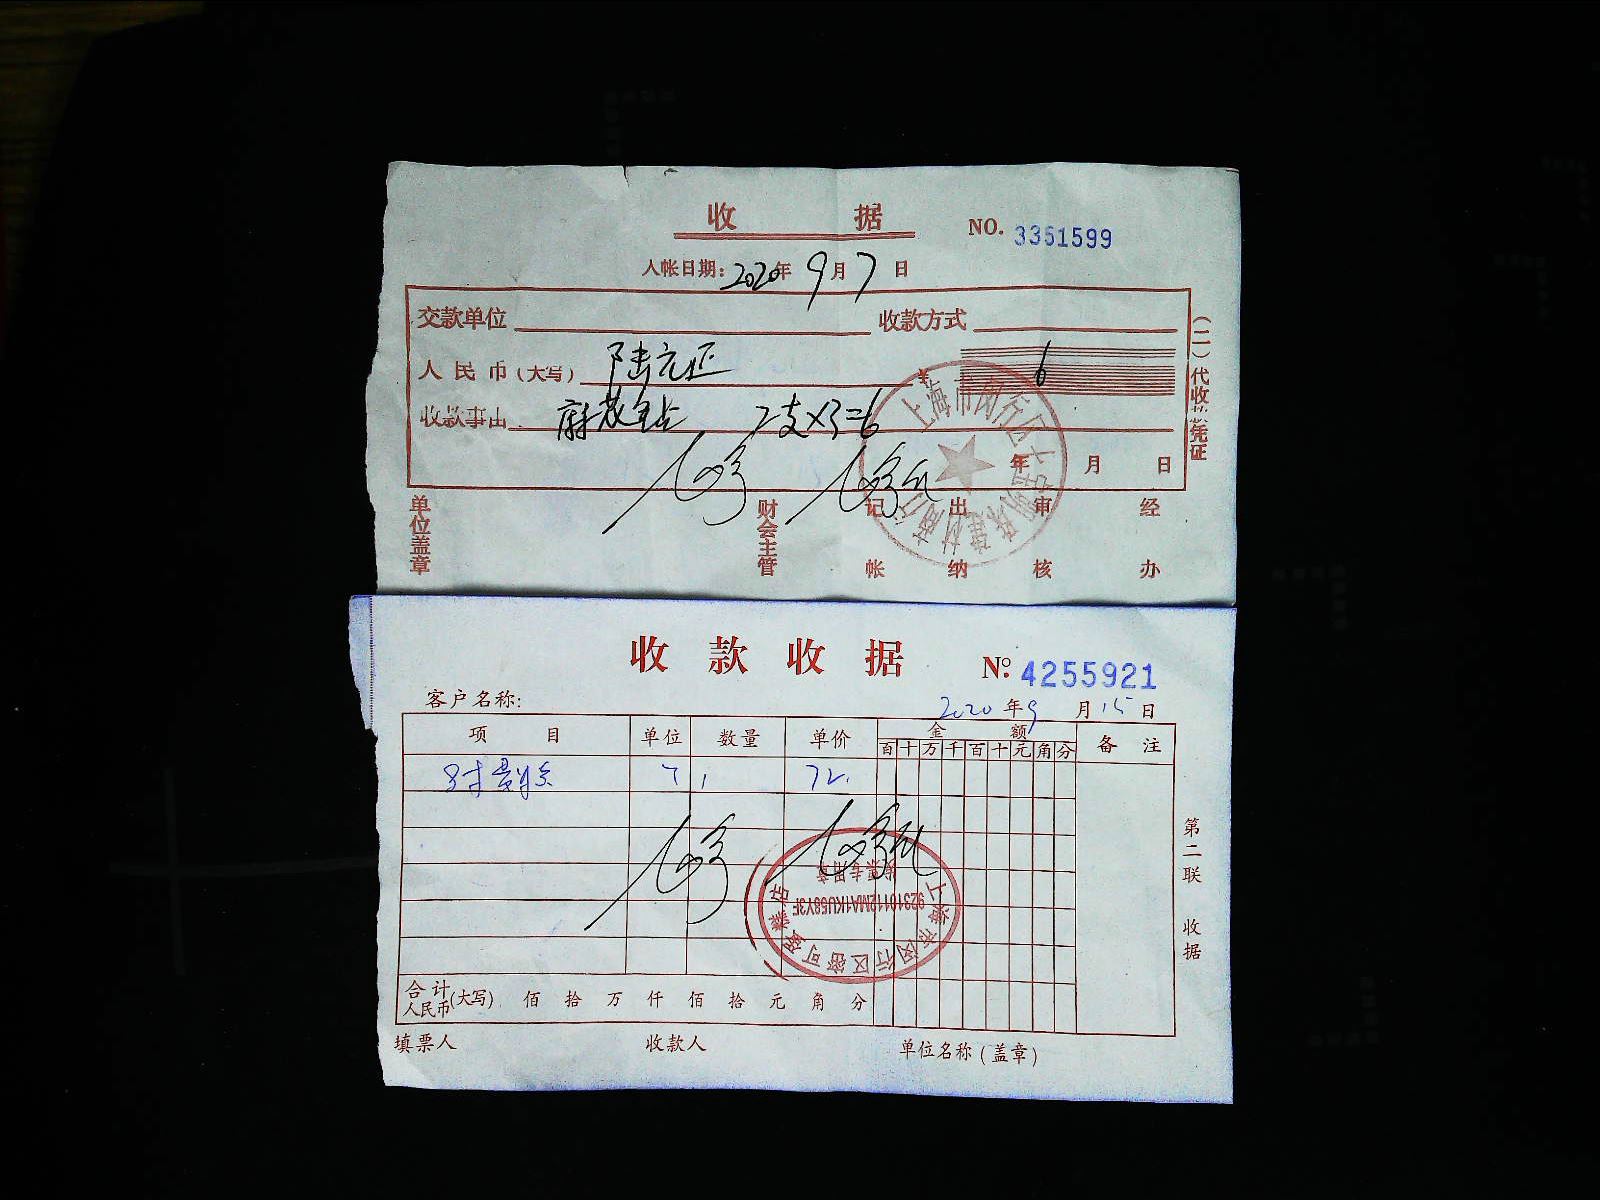 收 据
NO. 3351599
入帐日期：2020年 9月 7日
交款单位 收款方式
人民币（大写） 陆元正 6
收款事由 2支×3=6
年 月 日
上海市闵行区
建材商行
单位盖章 财会主管 记帐 出纳 审核 经办
（二）代收款凭证
收款收据
№: 4255921
客户名称:
2020年9月15日
项 目 单位 数量 单价 金 额 备 注
百 十 万 千 百 十 元 角 分
8寸 1 72.
发票专用章
92310112MA1KU58Y3F
上海市闵行区密可蛋糕店
合计人民币(大写) 佰 拾 万 仟 佰 拾 元 角 分
填票人 收款人 单位名称(盖章)
第二联 收据